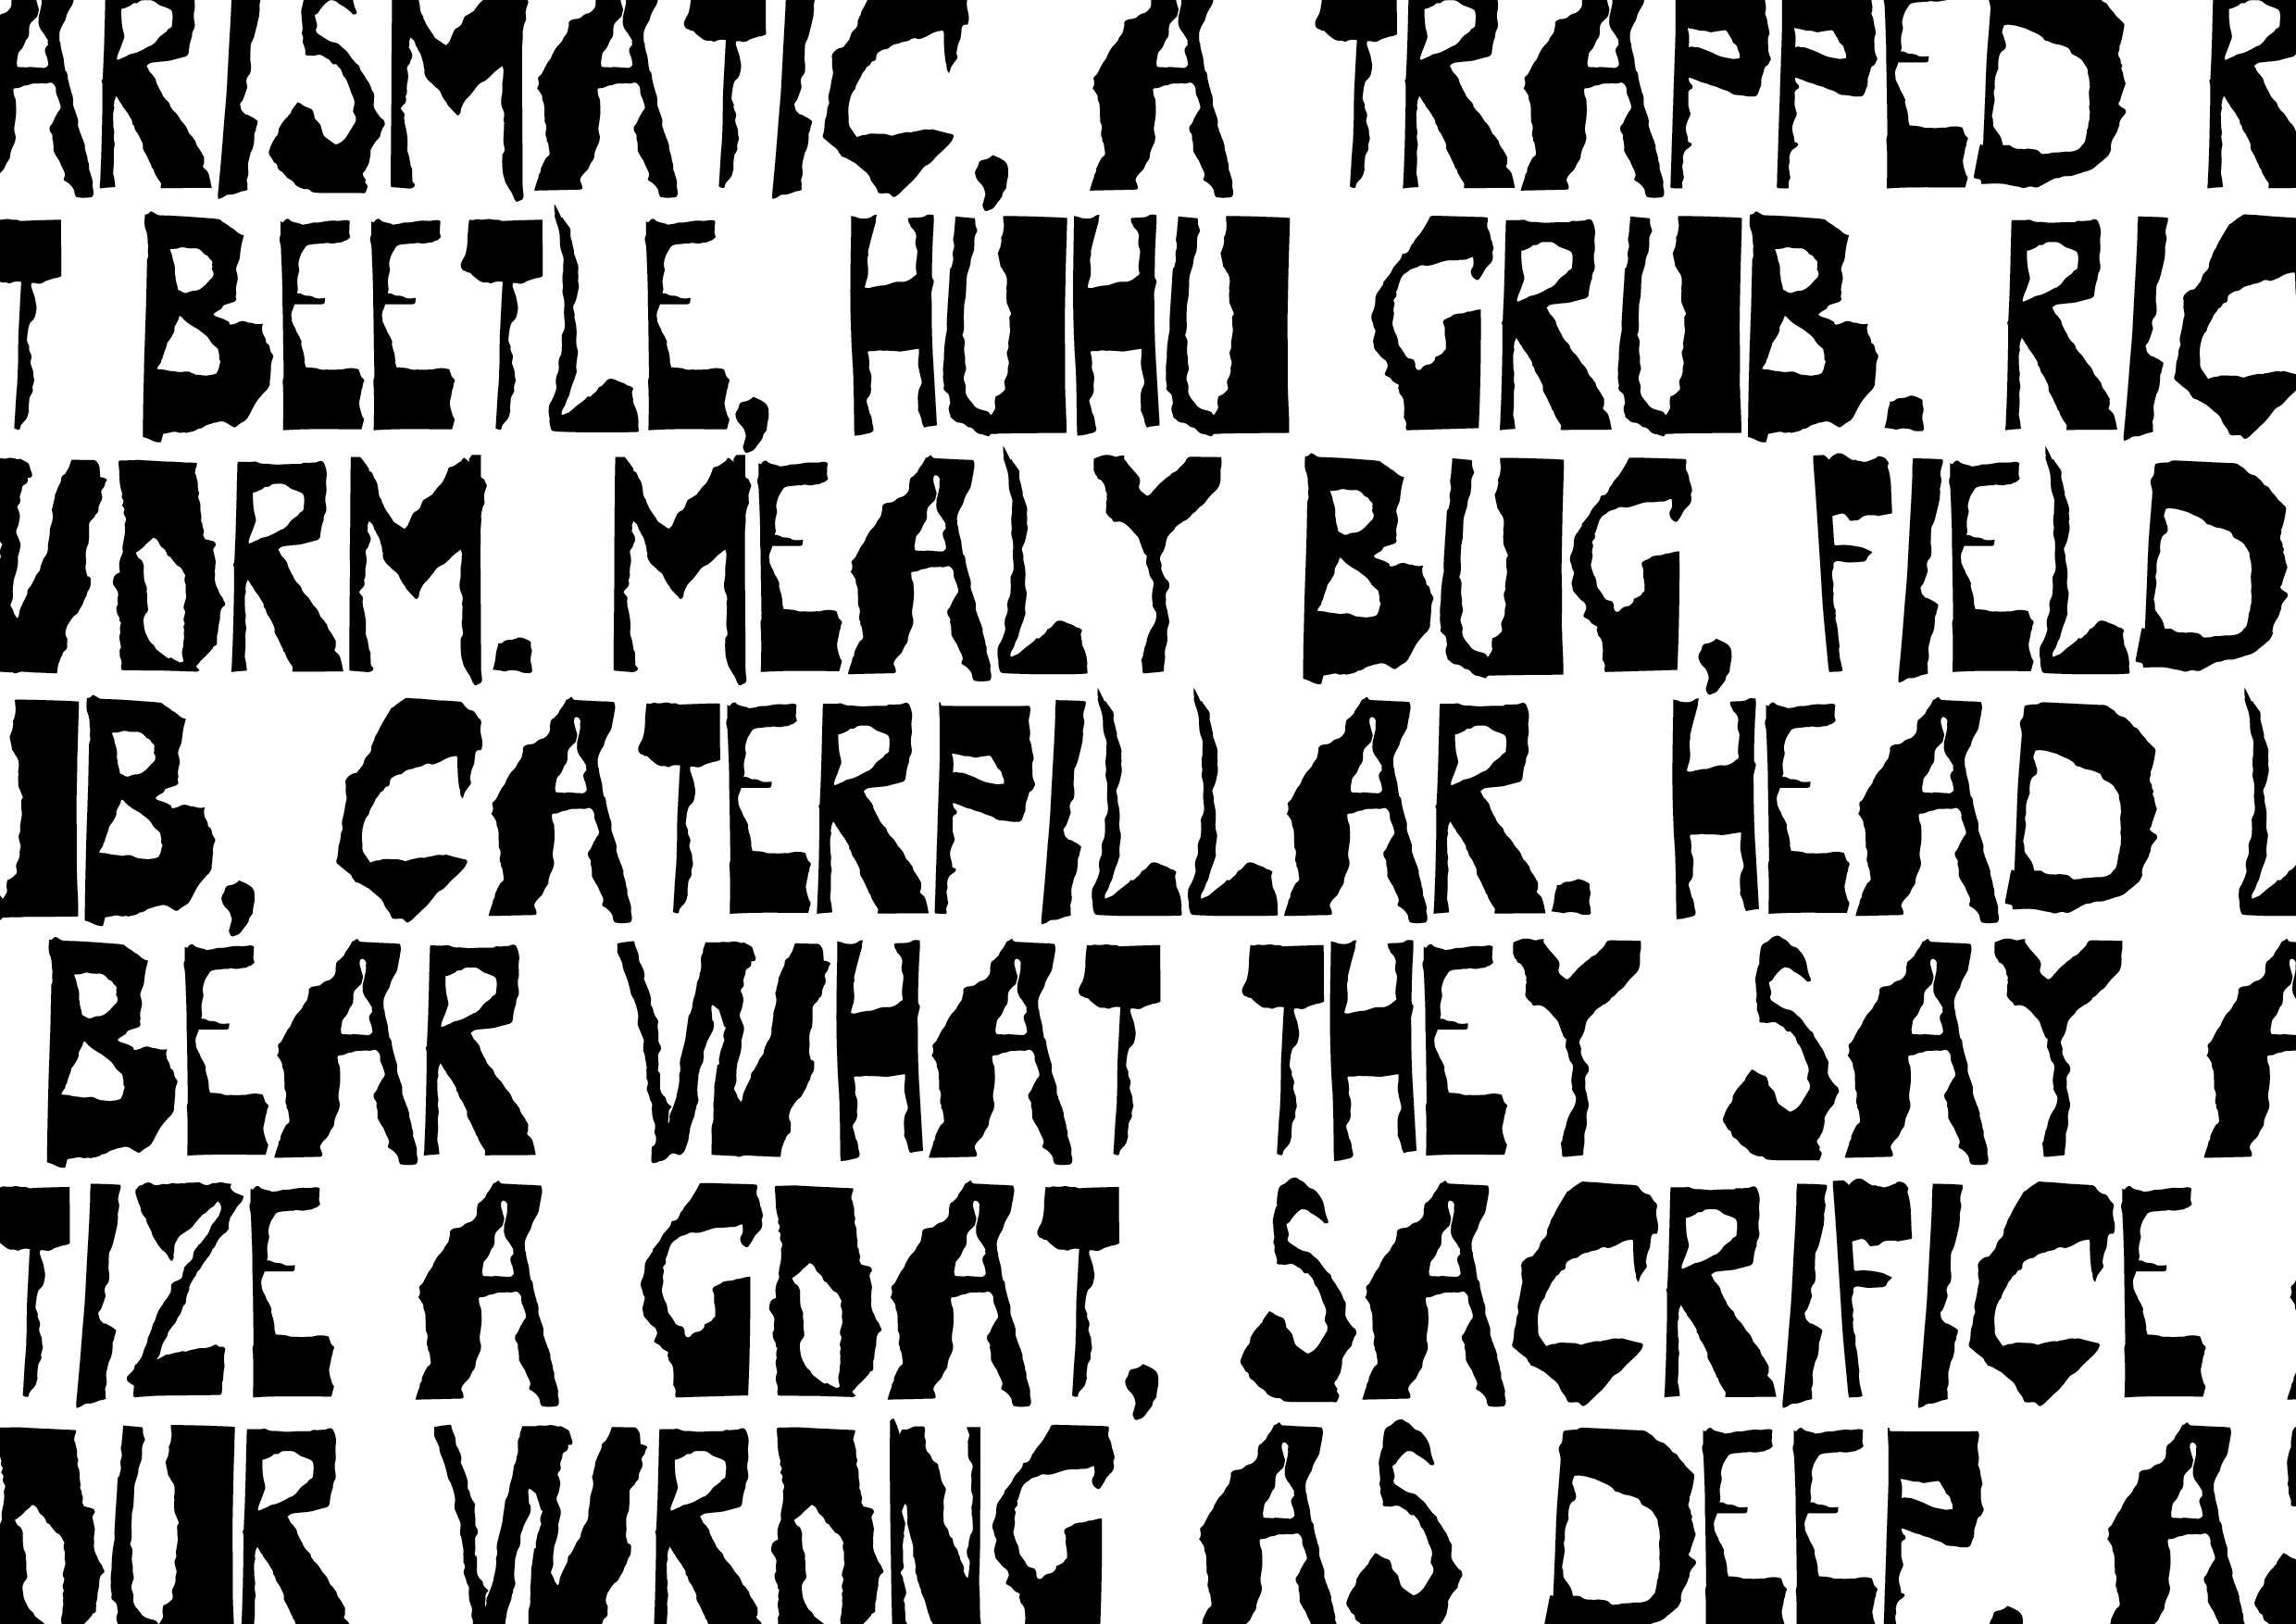 ARISMATIC, A TRAPPED R
T BEETLE, HUHU GRUB. RIC
WORM. MEALY BUG, FIELD
UB, CATERPILLAR. HEAD L
BEAR WHAT THEY SAY A
TIZE A GOAT, SACRIFICE
OUR WRONG AS DEEP, A